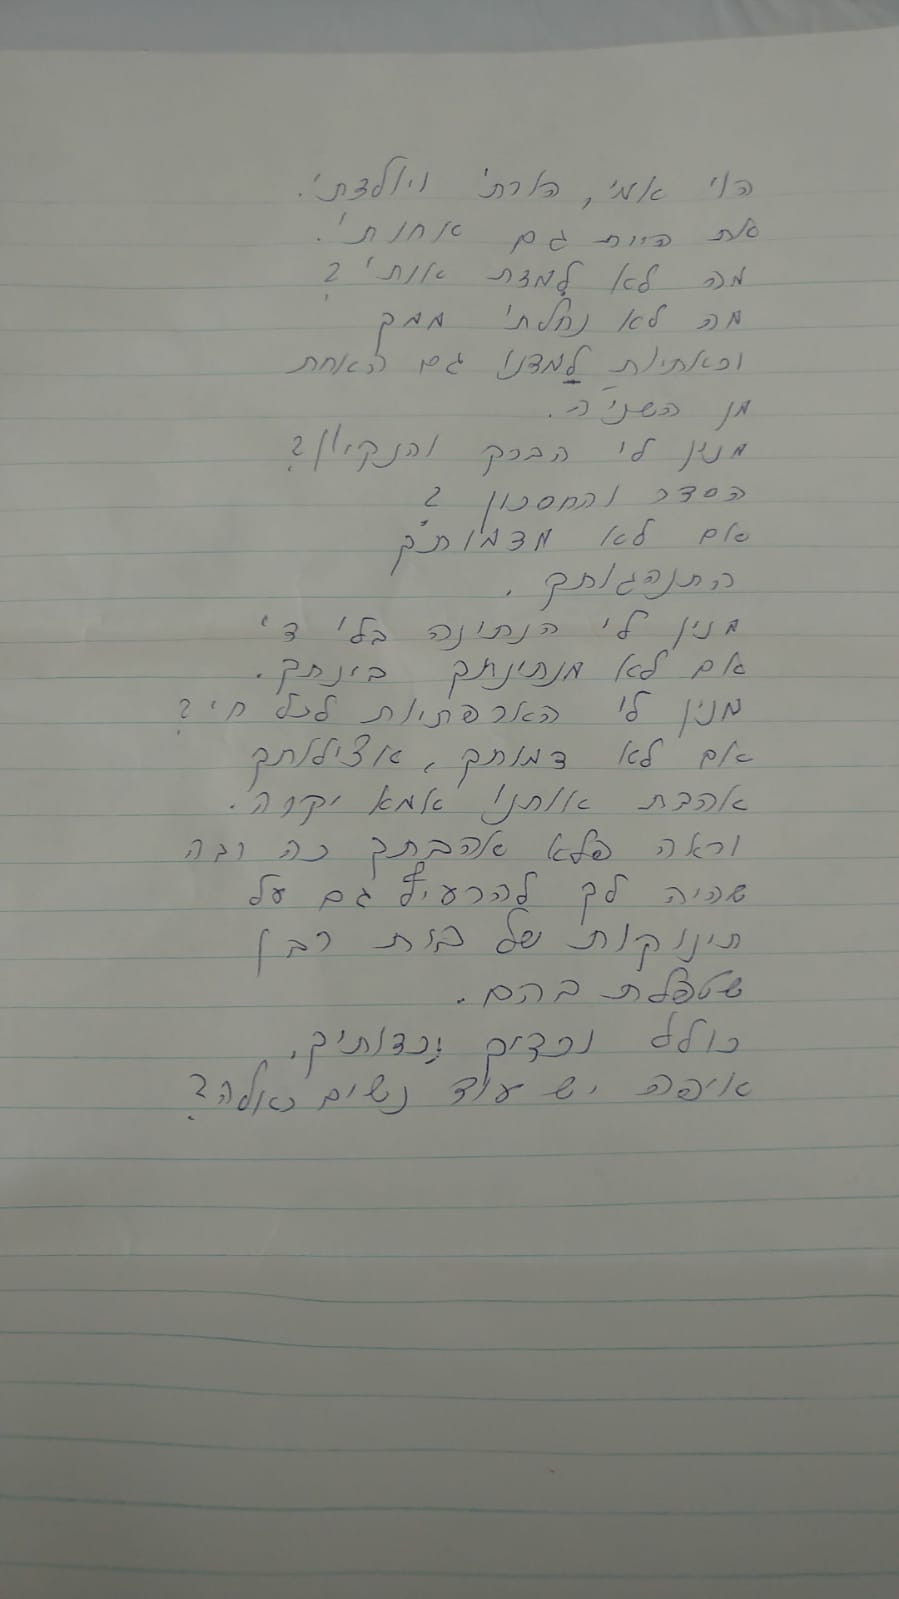 הוי אמי, הורתי ויולדתי.
את היית גם אחותי.
מה לא למדת אותי?
מה לא נחלתי ממך
וכאחיות למדנו גם האחת
מן השניה.
מנין לי הברק והנקיון?
הסדר והחסכון?
אם לא מדמותך
התנהגותך.
מנין לי הנתינה בלי די
אם לא מנתינתך בינתך.
מנין לי האכפתיות לכל חי?
אם לא דמותך, אצילותך
אהבת אותנו אמא יקרה.
וראה פלא אהבתך כה רבה
שהיה לך להרעיף גם על
תינוקות של בית רבן
שטפלת בהם.
כולל נכדיך ונכדותיך.
איפה יש עוד נשים כאלה?